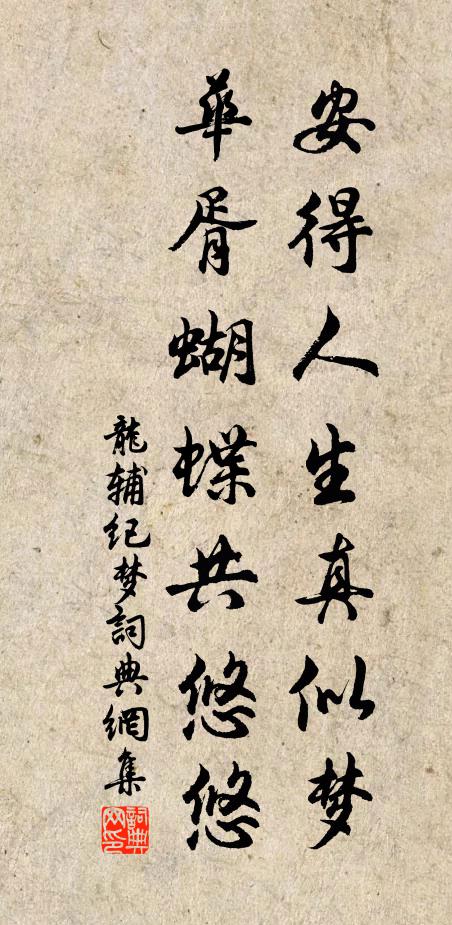 安得人生真似梦
华胥蝴蝶共悠悠
龍辅纪梦詞典網集
詞典网印